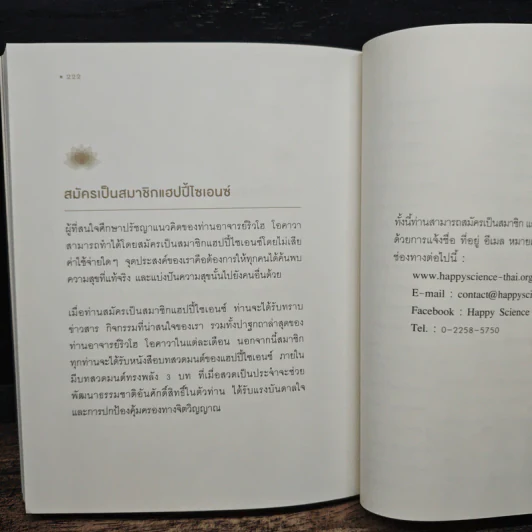 สมัครเป็นสมาชิกแฮปปี้ไซเอนซ์
ผู้ที่สนใจศึกษาปรัชญาแนวคิดของท่านอาจารย์ริวโฮ โอคาวา
สามารถทำได้โดยสมัครเป็นสมาชิกแฮปปี้ไซเอนซ์โดยไม่เสีย
ค่าใช้จ่ายใดๆ จุดประสงค์ของเราคือต้องการให้ทุกคนได้ค้นพบ
ความสุขที่แท้จริง และแบ่งปันความสุขนั้นไปยังคนอื่นด้วย
เมื่อท่านสมัครเป็นสมาชิกแฮปปี้ไซเอนซ์ ท่านจะได้รับทราบ
ข่าวสาร กิจกรรมที่น่าสนใจของเรา รวมทั้งปาฐกถาล่าสุดของ
ท่านอาจารย์ริวโฮ โอคาวาในแต่ละเดือน นอกจากนี้สมาชิก
ทุกท่านจะได้รับหนังสือบทสวดมนต์ของแฮปปี้ไซเอนซ์ ภายใน
มีบทสวดมนต์ทรงพลัง 3 บท ที่เมื่อสวดเป็นประจำจะช่วย
พัฒนาธรรมชาติอันศักดิ์สิทธิ์ในตัวท่าน ได้รับแรงบันดาลใจ
และการปกป้องคุ้มครองทางจิตวิญญาณ
ทั้งนี้ท่านสามารถสมัครเป็นสมาชิก
ด้วยการแจ้งชื่อ ที่อยู่ อีเมล
ช่องทางต่อไปนี้ :
www.happyscience-thai.org
E-mail : contact@happysci
Facebook : Happy Science
Tel. : 0-2258-5750